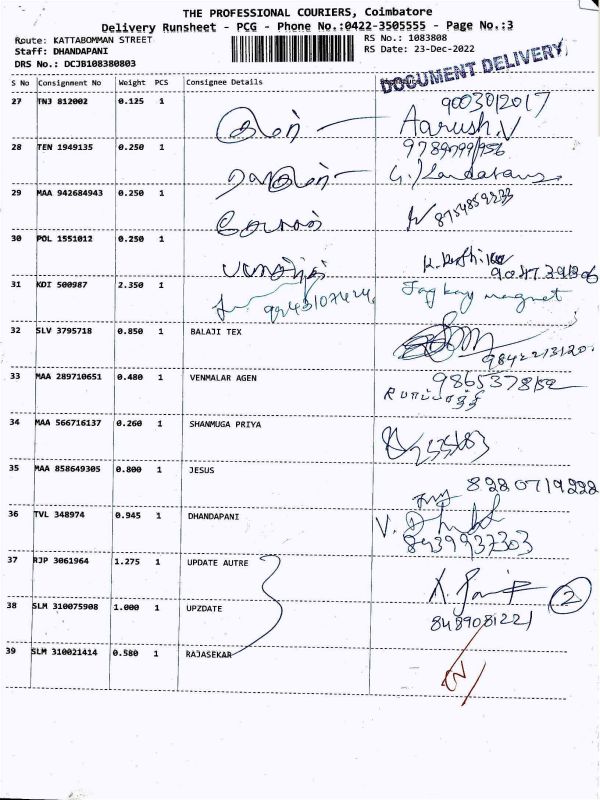 THE PROFESSIONAL COURIERS, Coimbatore
Delivery Runsheet - PCG - Phone No.:0422-3505555 - Page No.:3
Route: KATTABOMMAN STREET
RS No.: 1083808
Staff: DHANDAPANI
RS Date: 23-Dec-2022
DRS No.: DCJB108380803
DOCUMENT DELIVERY
S No Consignment No Weight PCS Consignee Details Signature
9003012017
27 TNJ 812002 0.125 1 Aarush.V
28 TEN 1949135 0.250 1
29 MAA 942684943 0.250 1 8754859233
30 POL 1551012 0.250 1
31 KDI 500987 2.350 1
32 SLV 3795718 0.850 1 BALAJI TEX
9842213120
33 MAA 289710651 0.480 1 VENMALAR AGEN
34 MAA 566716137 0.260 1 SHANMUGA PRIYA
35 MAA 858649305 0.800 1 JESUS
8220719222
36 TVL 348974 0.945 1 DHANDAPANI
8439937303
37 RJP 3061964 1.275 1 UPDATE AUTRE
2
38 SLM 310075908 1.000 1 UPZDATE
8489081221
39 SLM 310021414 0.580 1 RAJASEKAR